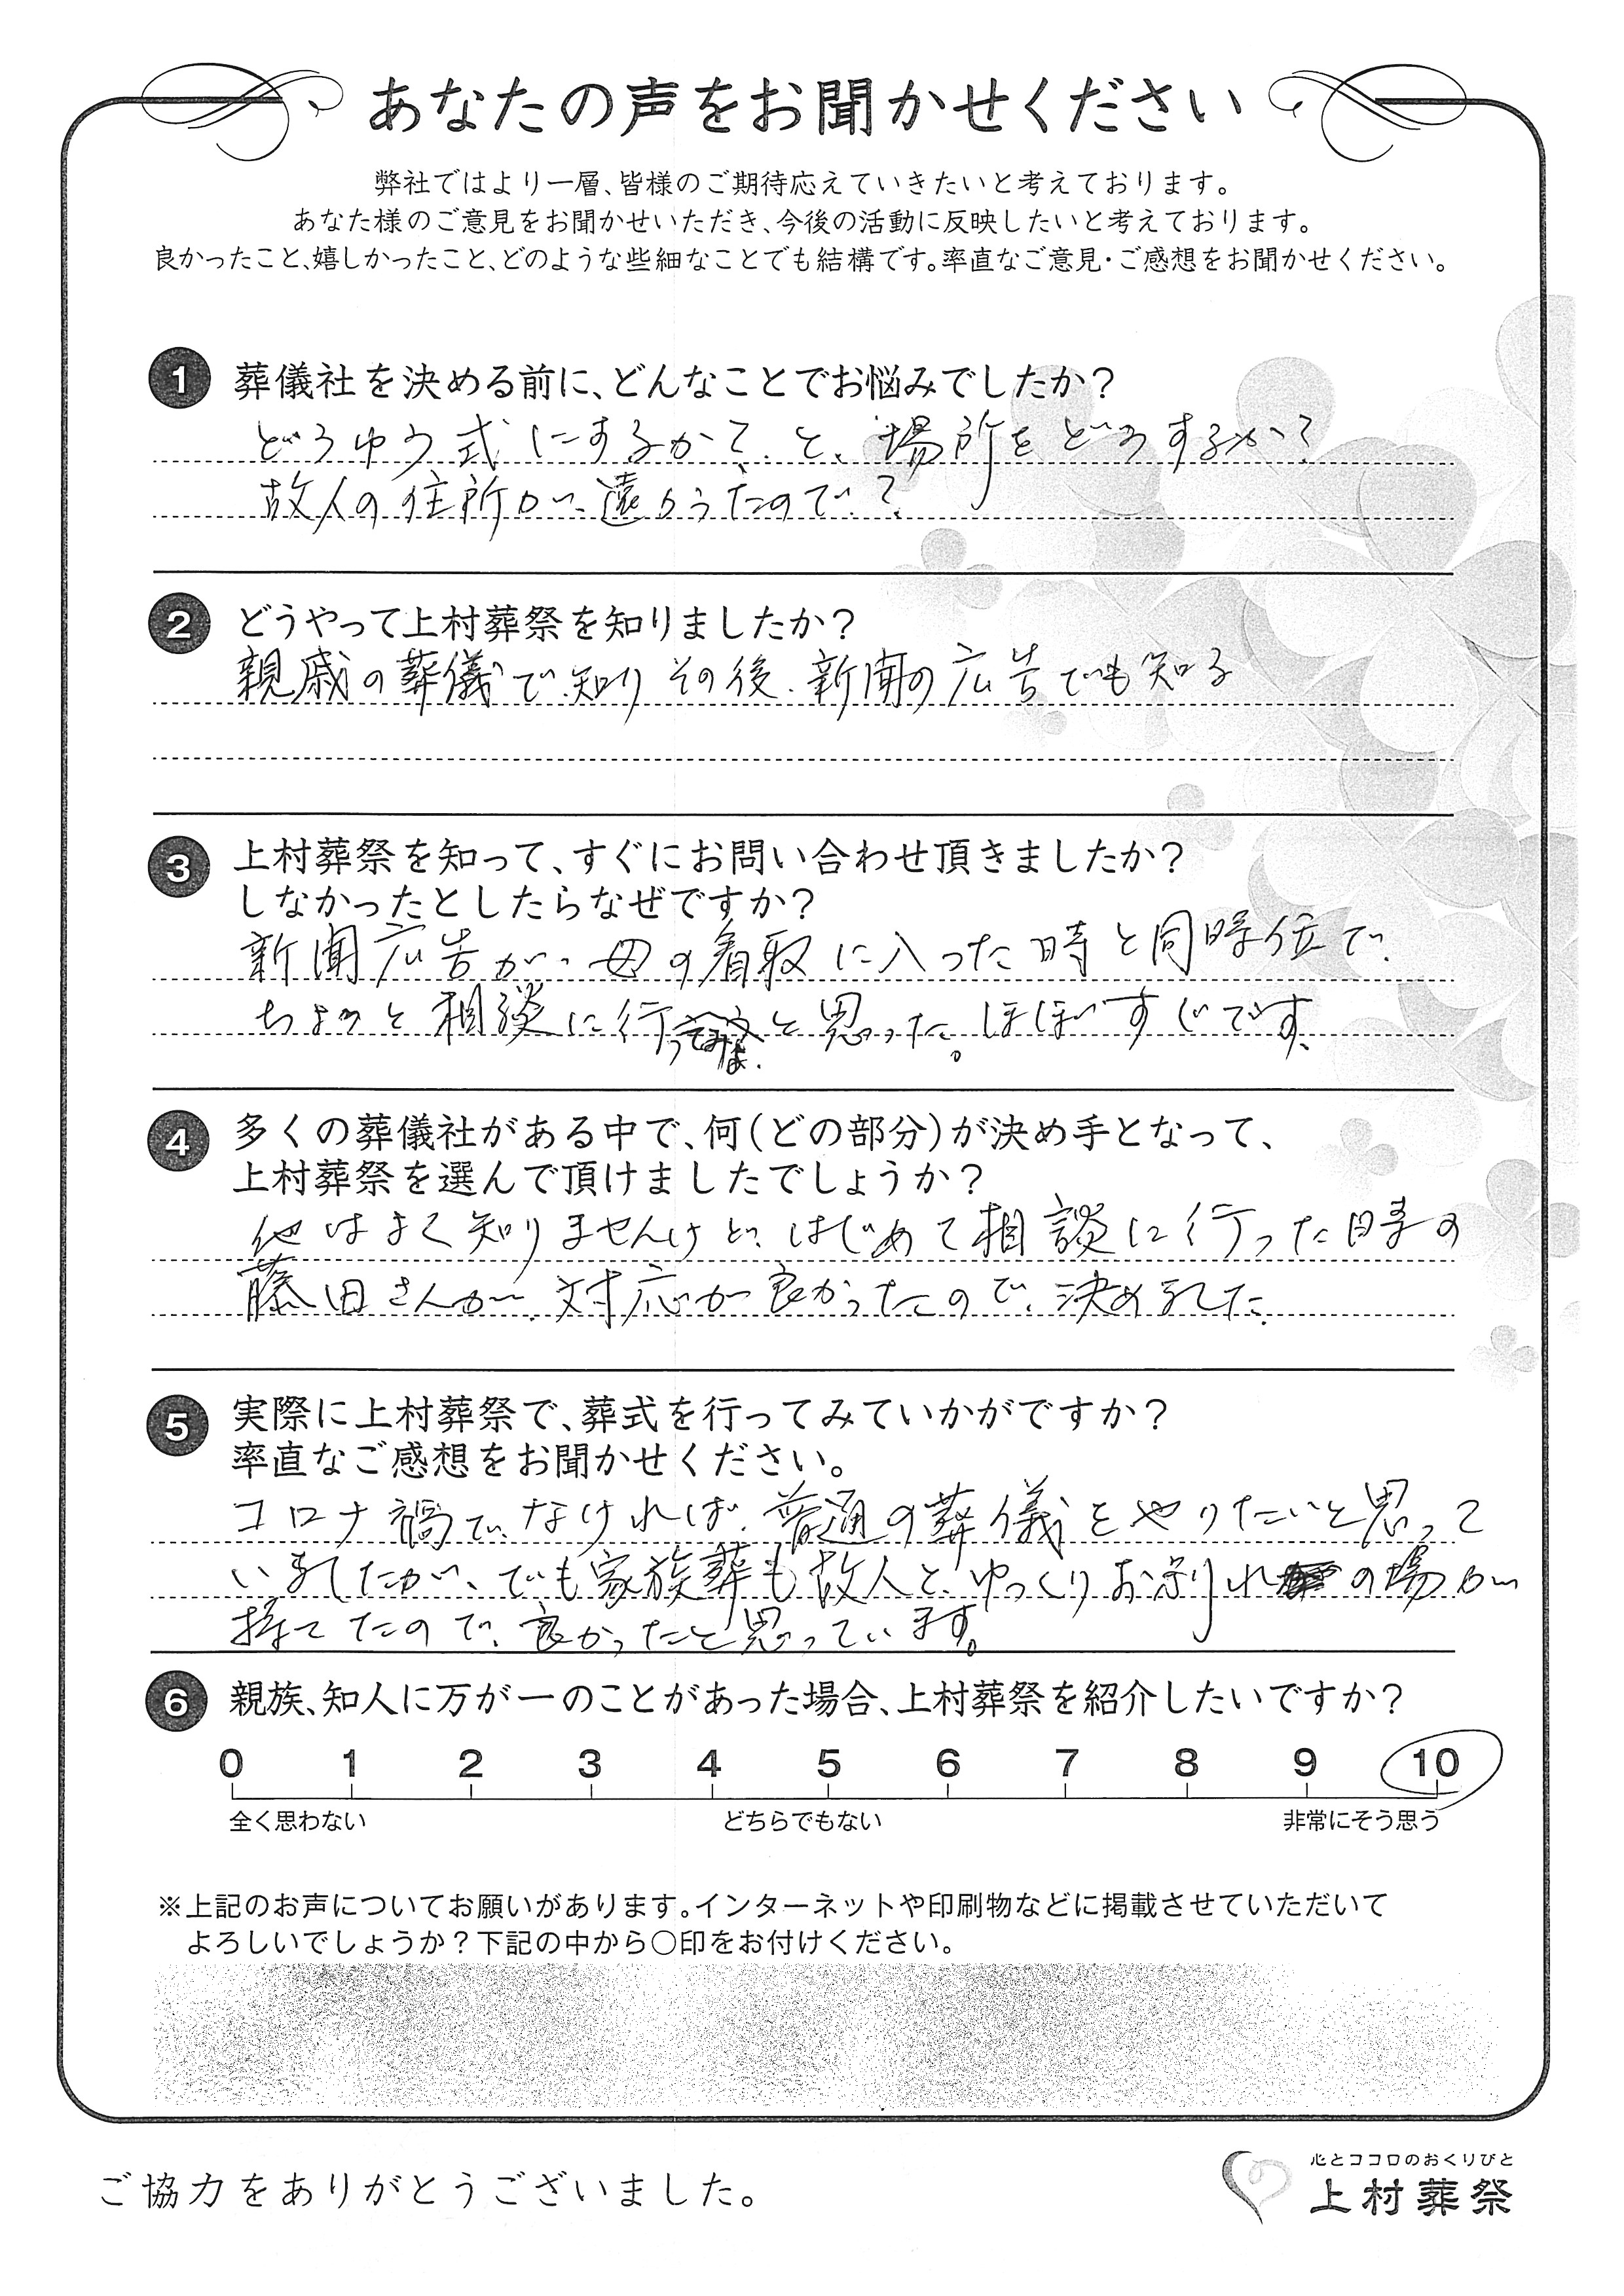 あなたの声をお聞かせください
弊社ではより一層、皆様のご期待応えていきたいと考えております。
あなた様のご意見をお聞かせいただき、今後の活動に反映したいと考えております。
良かったこと、嬉しかったこと、どのような些細なことでも結構です。率直なご意見・ご感想をお聞かせください。
1 葬儀社を決める前に、どんなことでお悩みでしたか?
どうゆう式にするか?と、場所をどうするか?
故人の住所が遠かったので?
2 どうやって上村葬祭を知りましたか?
親戚の葬儀で知りその後、新聞の広告でも知る
3 上村葬祭を知って、すぐにお問い合わせ頂きましたか?
しなかったとしたらなぜですか?
新聞広告が、母の看取に入った時と同時位で、
ちょっと相談に行ってみようと思った。ほぼすぐです、
4 多くの葬儀社がある中で、何(どの部分)が決め手となって、
上村葬祭を選んで頂けましたでしょうか?
他はよく知りませんけど、はじめて相談に行った時の
藤田さんが、対応が良かったので、決めました。
5 実際に上村葬祭で、葬式を行ってみていかがですか?
率直なご感想をお聞かせください。
コロナ禍でなければ、普通の葬儀をやりたいと思って
いましたが、でも家族葬も故人と、ゆっくりお別れの場が
持てたので、良かったと思っています。
6 親族、知人に万が一のことがあった場合、上村葬祭を紹介したいですか?
0 1 2 3 4 5 6 7 8 9 10
全く思わない どちらでもない 非常にそう思う
※上記のお声についてお願いがあります。インターネットや印刷物などに掲載させていただいて
よろしいでしょうか?下記の中から○印をお付けください。
ご協力をありがとうございました。
心とココロのおくりびと
上村葬祭